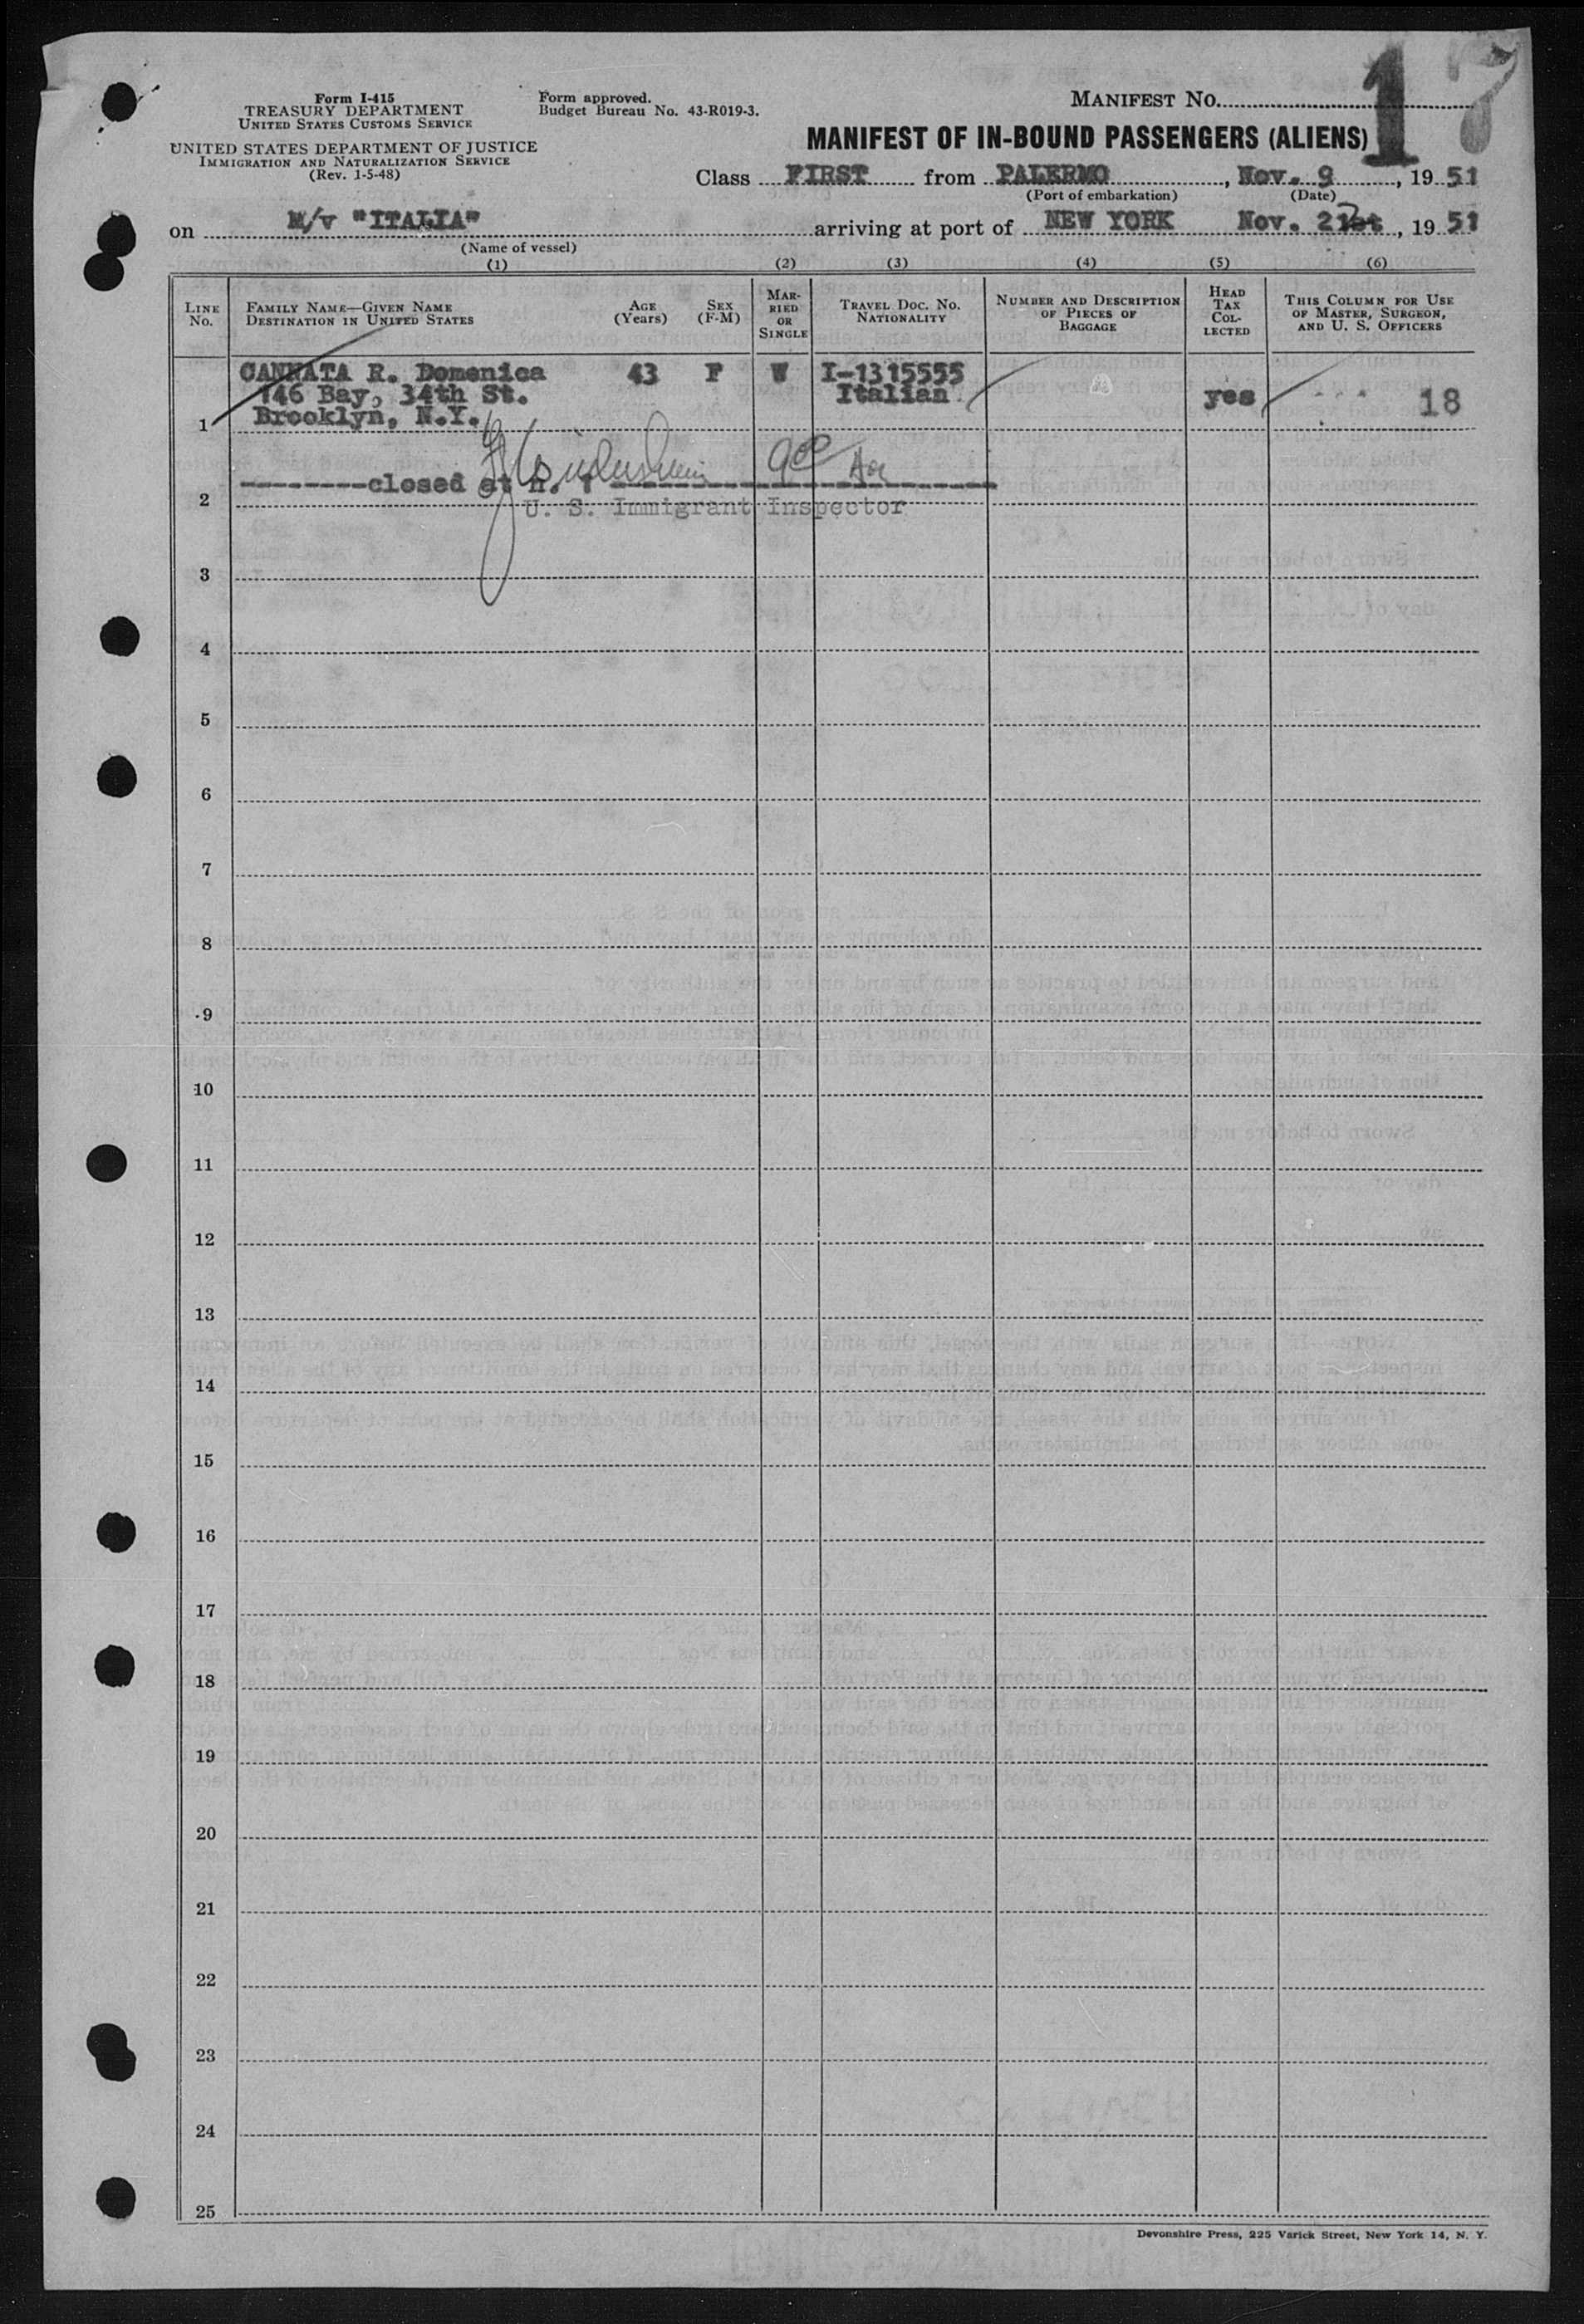 17
Form I-415
TREASURY DEPARTMENT
UNITED STATES CUSTOMS SERVICE
UNITED STATES DEPARTMENT OF JUSTICE
IMMIGRATION AND NATURALIZATION SERVICE
(Rev. 1-5-48)
Form approved.
Budget Bureau No. 43-R019-3.
MANIFEST No.
MANIFEST OF IN-BOUND PASSENGERS (ALIENS)
Class FIRST from PALERMO, Nov. 9, 1951
(Port of embarkation) (Date)
on M/v "ITALIA" arriving at port of NEW YORK Nov. 21st, 1951
(Name of vessel)
(1) (2) (3) (4) (5) (6)
LINE No.
FAMILY NAME—GIVEN NAME
DESTINATION IN UNITED STATES
AGE (Years)
SEX (F-M)
MARRIED OR SINGLE
TRAVEL DOC. NO.
NATIONALITY
NUMBER AND DESCRIPTION OF PIECES OF BAGGAGE
HEAD TAX COLLECTED
THIS COLUMN FOR USE OF MASTER, SURGEON, AND U. S. OFFICERS
CANNATA R. Domenica 43 F W I-1315555
146 Bay, 34th St. Italian yes 18
1 Brooklyn, N.Y.
--------closed at n. 1--------
2
U. S. Immigrant Inspector
3
4
5
6
7
8
9
10
11
12
13
14
15
16
17
18
19
20
21
22
23
24
25
Devonshire Press, 225 Varick Street, New York 14, N. Y.